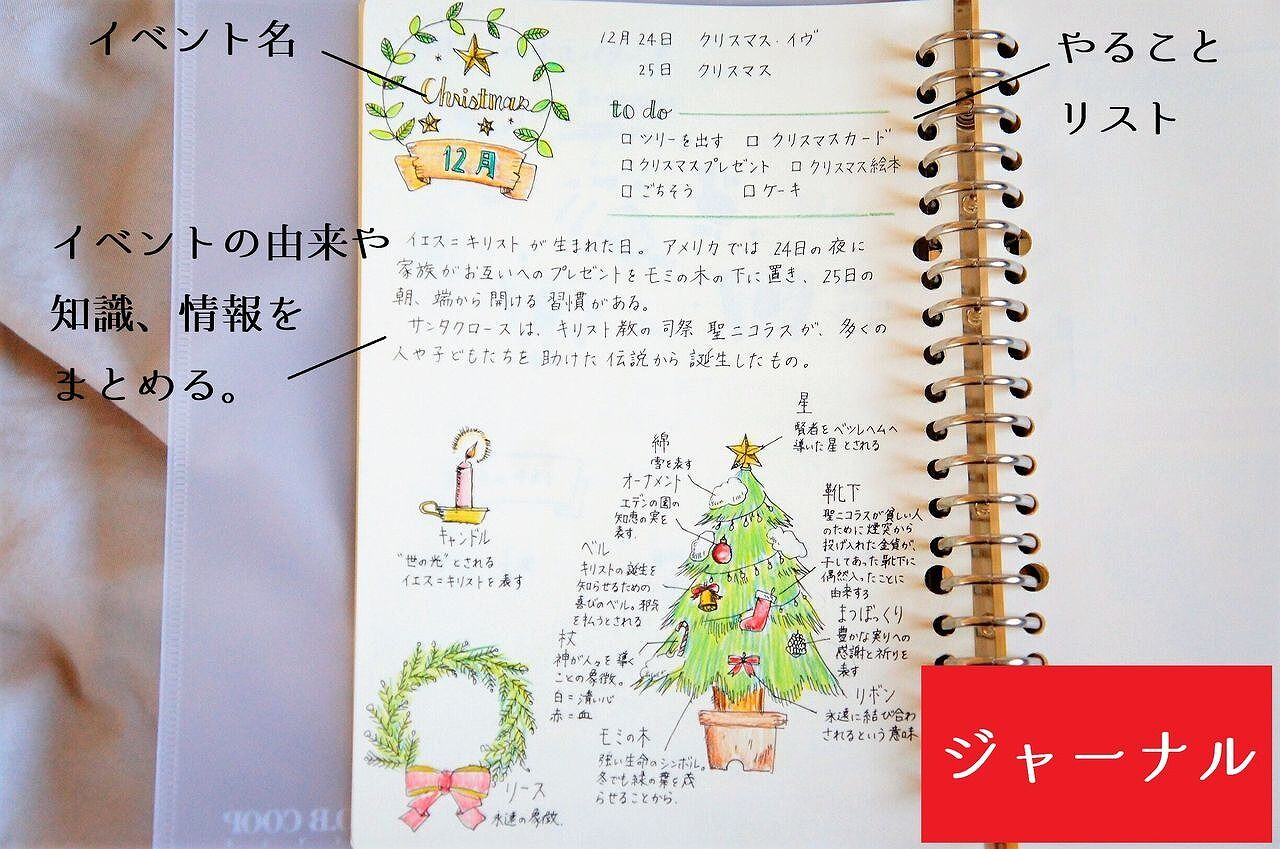 イベント名
Christmas
12月
12月24日 クリスマス・イヴ
25日 クリスマス
to do
□ツリーを出す □クリスマスカード
□クリスマスプレゼント □クリスマス絵本
□ごちそう □ケーキ
やること
リスト
イベントの由来や
知識、情報を
まとめる。
イエス=キリストが生まれた日。アメリカでは24日の夜に
家族がお互いへのプレゼントをモミの木の下に置き、25日の
朝、端から開ける習慣がある。
サンタクロースは、キリスト教の司祭 聖ニコラスが、多くの
人や子どもたちを助けた伝説から誕生したもの。
キャンドル
"世の光"とされる
イエス=キリストを表す
星
賢者をベツレヘムへ
導いた星とされる
綿
雪を表す
オーナメント
エデンの園の
知恵の実を
表す
ベル
キリストの誕生を
知らせるための
喜びのベル。邪気
を払うとされる
杖
神が人々を導く
ことの象徴。
白=清い心
赤=血
モミの木
強い生命のシンボル。
冬でも緑の葉を茂
らせることから。
靴下
聖ニコラスが貧しい人
のために煙突から
投げ入れた金貨が、
干してあった靴下に
偶然入ったことに
由来する
まつぼっくり
豊かな実りへの
感謝と祈りを
表す
リボン
永遠に結び合わ
されるという意味
リース
永遠の象徴。
ジャーナル